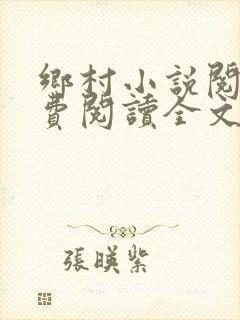 鄉村小說閱
費閱讀全文
張暎紫